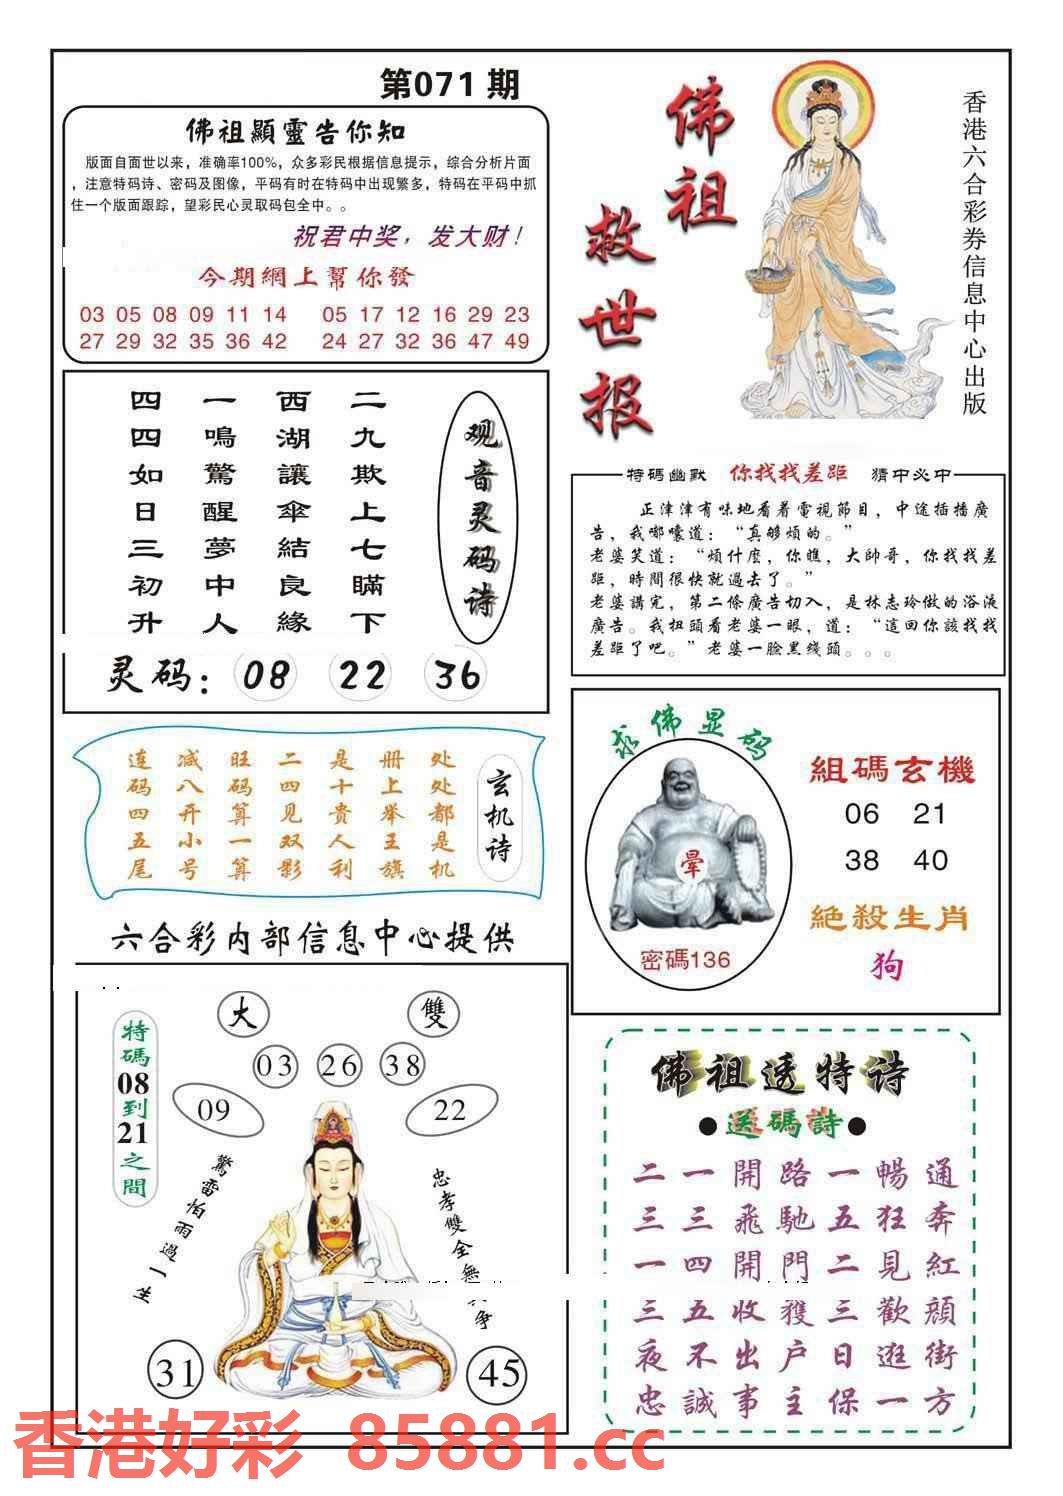 第071期
佛祖顯靈告你知
版面自面世以来，准确率100%，众多彩民根据信息提示，综合分析片面
，注意特码诗、密码及图像，平码有时在特码中出现繁多，特码在平码中抓
住一个版面跟踪，望彩民心灵取码包全中。。
祝君中奖，发大财！
今期網上幫你發
03 05 08 09 11 14 05 17 12 16 29 23
27 29 32 35 36 42 24 27 32 36 47 49
佛祖
救世报
香港六合彩券信息中心出版
观音灵码诗
二九欺上七瞒下
西湖讓傘結良緣
一鳴驚醒夢中人
四四如日三初升
灵码：08 22 36
特碼幽默 你找找差距 猜中必中
正津津有味地看着電視節目，中途插播廣
告，我嘟嚷道：“真够煩的。”
老婆笑道：“煩什麼，你瞧，大帥哥，你找找差
距，時間很快就過去了。”
老婆講完，第二條廣告切入，是林志玲做的浴液
廣告。我扭頭看老婆一眼，道：“這回你該找找
差距了吧。”老婆一臉黑綫頭。。。
玄机诗
处处都是机
册上举王旗
是十贵人利
二四见双影
旺码算一算
减八开小号
连码四五尾
六合彩内部信息中心提供
求佛显码
暈
密碼136
組碼玄機
06 21
38 40
絕殺生肖
狗
大 雙
03 26 38
09 22
特碼08到21之間
驚雷怕雨過一生
忠孝雙全無
争
31 45
佛祖透特诗
●送碼詩●
二一開路一暢通
三三飛馳五狂奔
一四開門二見紅
三五收獲三歡顔
夜不出户日逛街
忠誠事主保一方
香港好彩 85881.cc